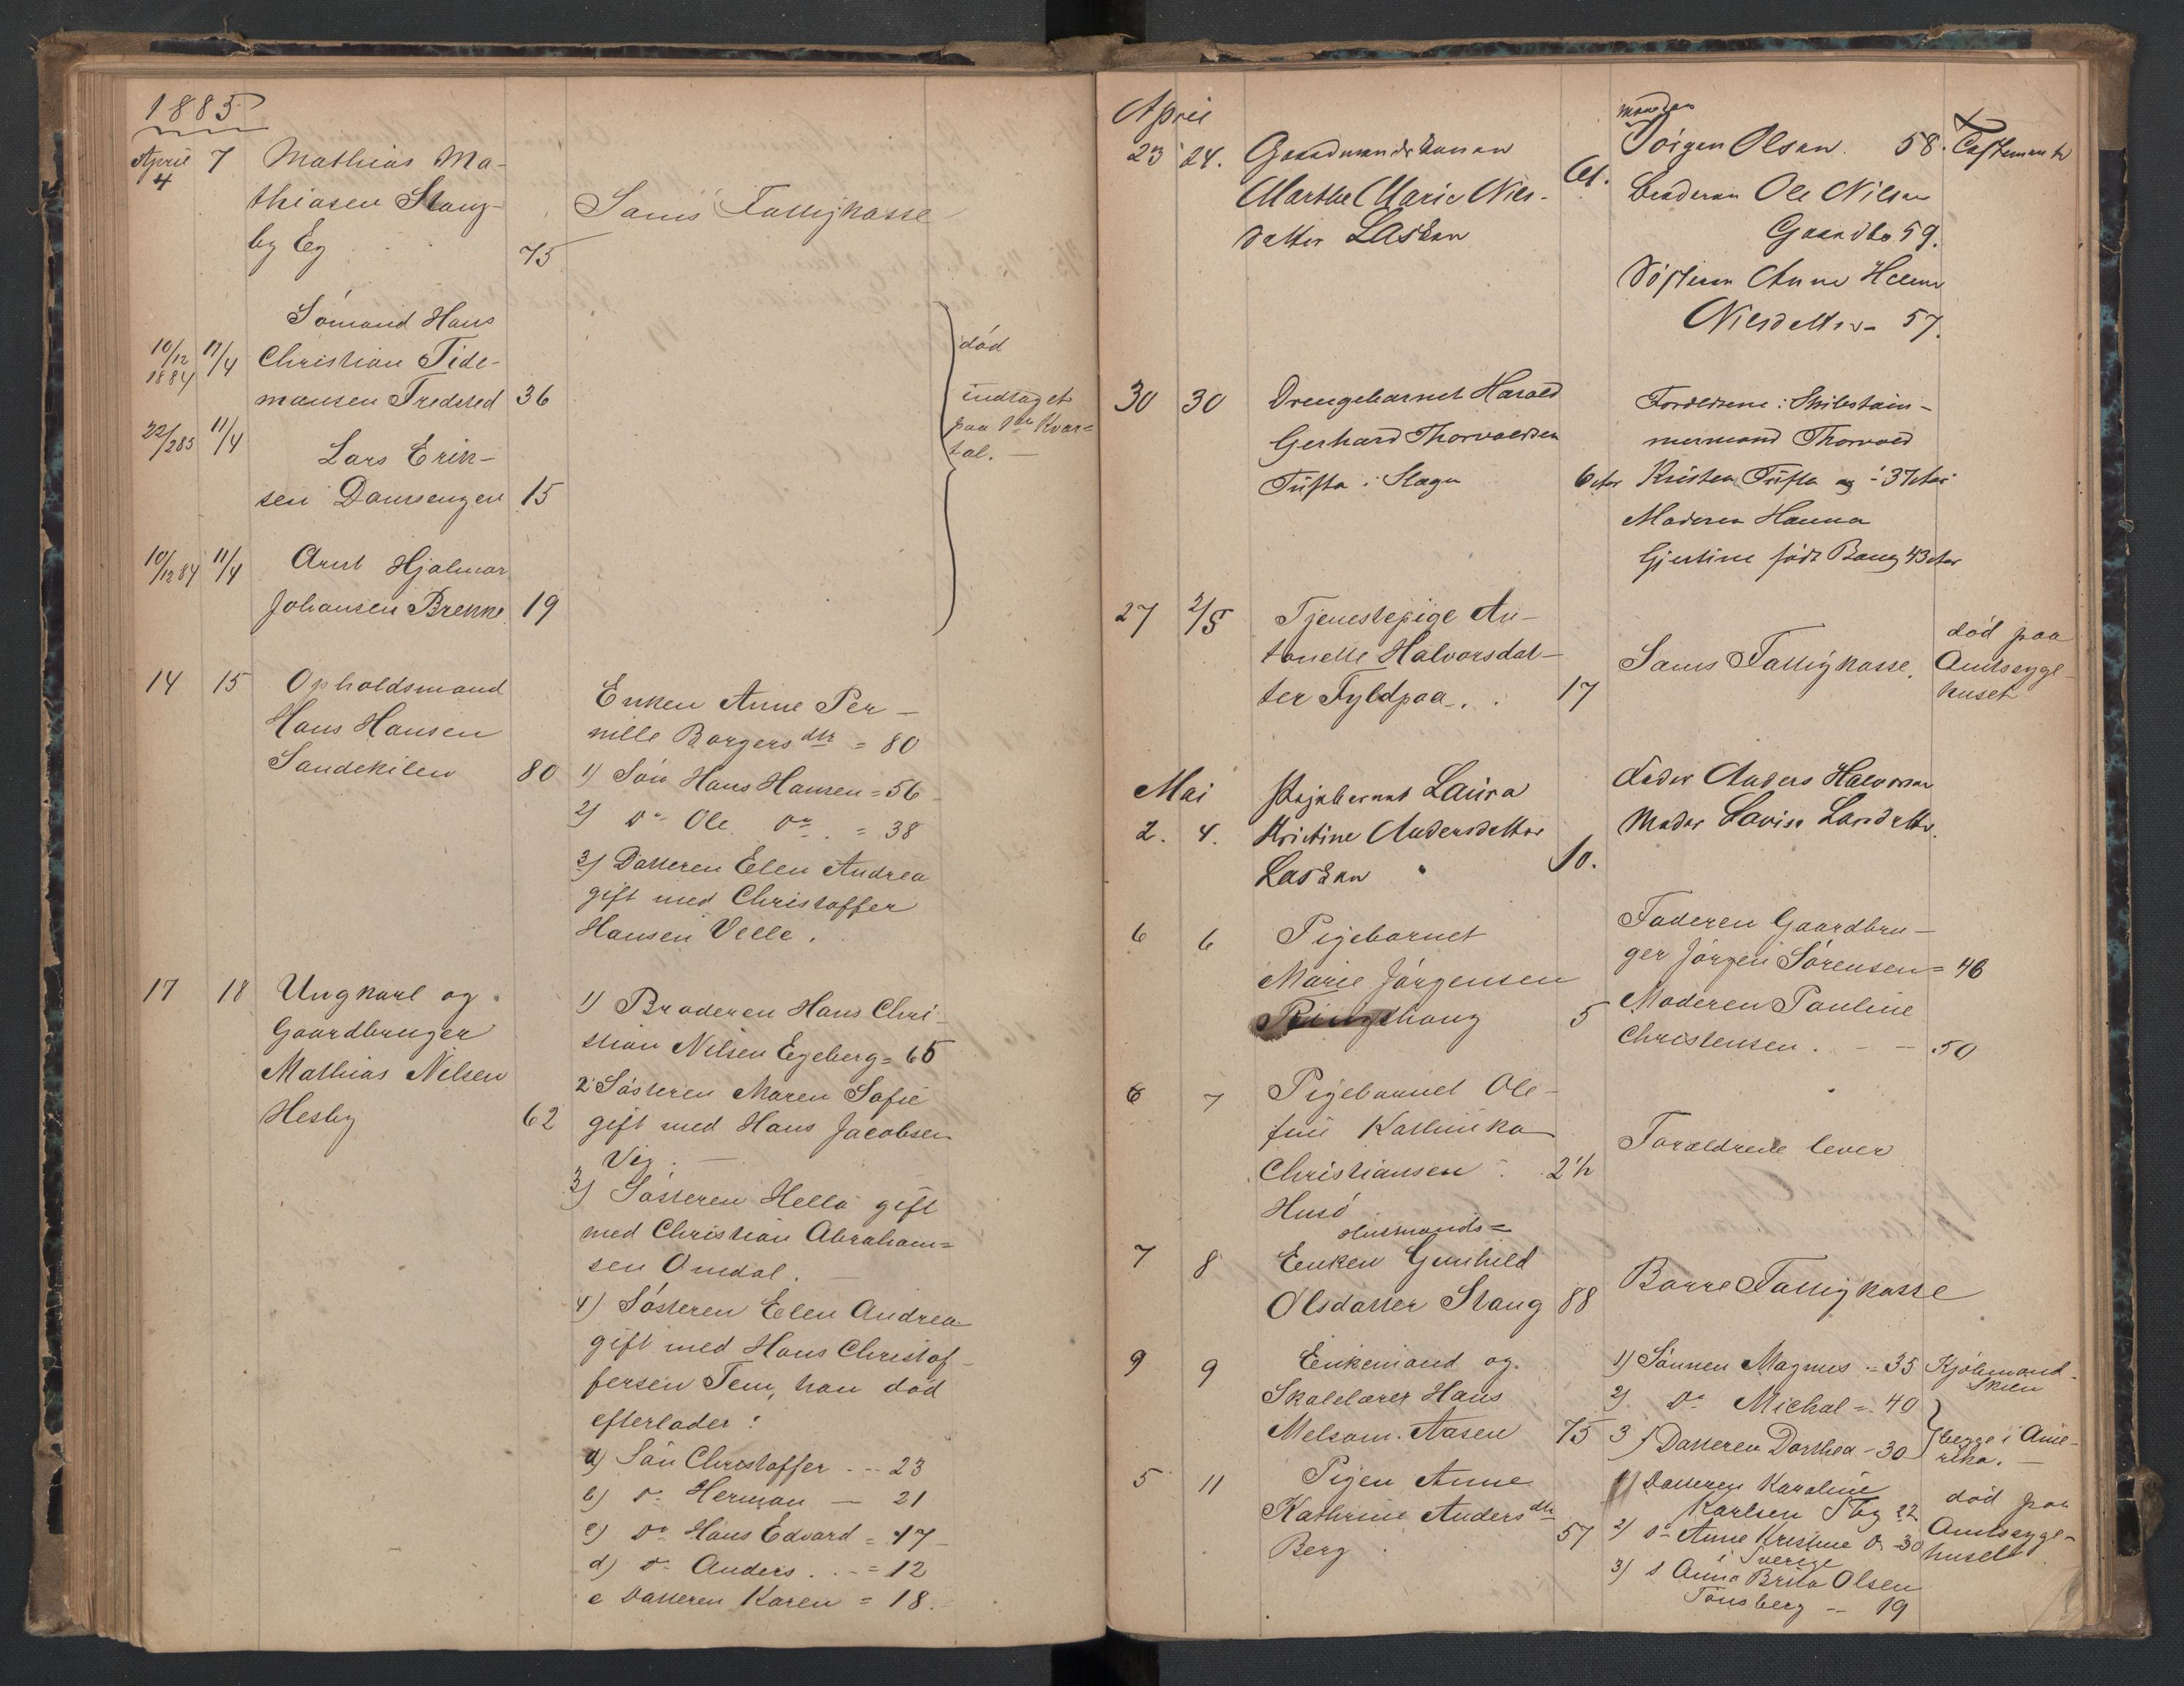 1885
April 4 7 Mathias Ma-
thiasen Slang-
by Eg 75
Sems Fattigkasse
Sömand Hans
10/12 1884 11/4 Christian Tide-
mansen Fredsted 36
22/2 85 11/4 Lars Erik-
sen Danserengen 15
10/12 84 11/4 Arnt Hjalmar
Johansen Brekke 19
död
indtaget
paa 1ste Kvar=
tal. —
14 15 Opholdsmand
Hans Hansen
Sandekilen 80
Enken Anne Per-
nille Borgersdtr = 80
1) Sön Hans Hansen = 56
2) Do Ole Do = 38
3) Datteren Elen Andrea
gift med Christoffer
Hansen Velle.
17 18 Ungkarl og
Gaardbruger
Mathias Nilsen
Hesby 62
1) Broderen Hans Chri-
stian Nilsen Egeberg = 65
2 Sösteren Maren Sofie
gift med Hans Jacobsen
Vig. —
3) Sösteren Hella gift
med Christian Abraham=
sen Omdal. —
4) Sösteren Elen Andrea
gift med Hans Christof-
fersen Tem, han död
efterlader:
a) Sön Christoffer - - 23
b) Do Herman — 21
c) Do Hans Edvard = 17
d) Do Anders . - = 12
e Datteren Karen = 18.
April
23 24. Gaardmandskonen
Marthe Marie Niels-
datter Lasken 61.
Manden
Jörgen Olsen. 58.
Broderen Ole Nilsen
Gaardbo 59.
Søsteren Anne Helene
Nilsdatter - 57.
Testament
30 30 Drengebarnet Harald
Gerhard Thorvaldsen
Tufta i Slagn 6 Mdr
Forældrene: Skibstøm-
mermand Thorvald
Kristen Tufta og - 37 Aar
Moderen Hanna
Gjertine født Bang 43 Aar
27 2/5 Tjenestepige An-
tonette Halvorsdat-
ter Fyldpaa . . 17
Sems Fattigkasse.
död paa
Amtssyge-
huset
Mai
2. 4. Pigebarnet Laura
Kristine Andersdatter
Lasken 10.
Fader Anders Halvorsen
Moder Lovise Larsdatter.
6 6 Pigebarnet
Marie Jörgensen
Ringshaug 5
Faderen Gaardbru-
ger Jörgen Sörensen = 46
Moderen Pauline
Christensen. - - 50
6 7 Pigebarnet Ole-
fine Kathinka
Christiansen 2 1/2
Husö
Forældrene lever
Husmands=
7 8 Enken Gunhild
Olsdatter Stang 88
Borre Fattigkasse
9 9 Enkemand og
Skolelærer Hans
Melsom Aasen 75
1) Sönnen Magnus = 35 Kjöbmand
Skien
2) Do Michal = 40
3) Datteren Dorthea - 30
begge i Ame-
rika. —
5 11 Pigen Anne
Kathrine Andersdtr
Berg 57
1) Datteren Karoline
Karlsen 22
2) Do Anne Kristine Do - 30
i Sverige
3) Anna Brita Olsen
Tönsberg — 19
död paa
Amtssyge-
huset